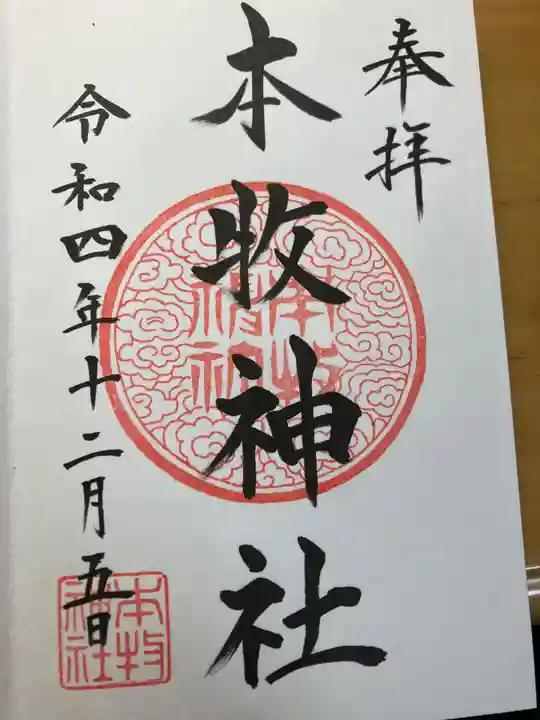 奉拝
本牧神社
本牧神社
令和四年十二月五日
本牧神社